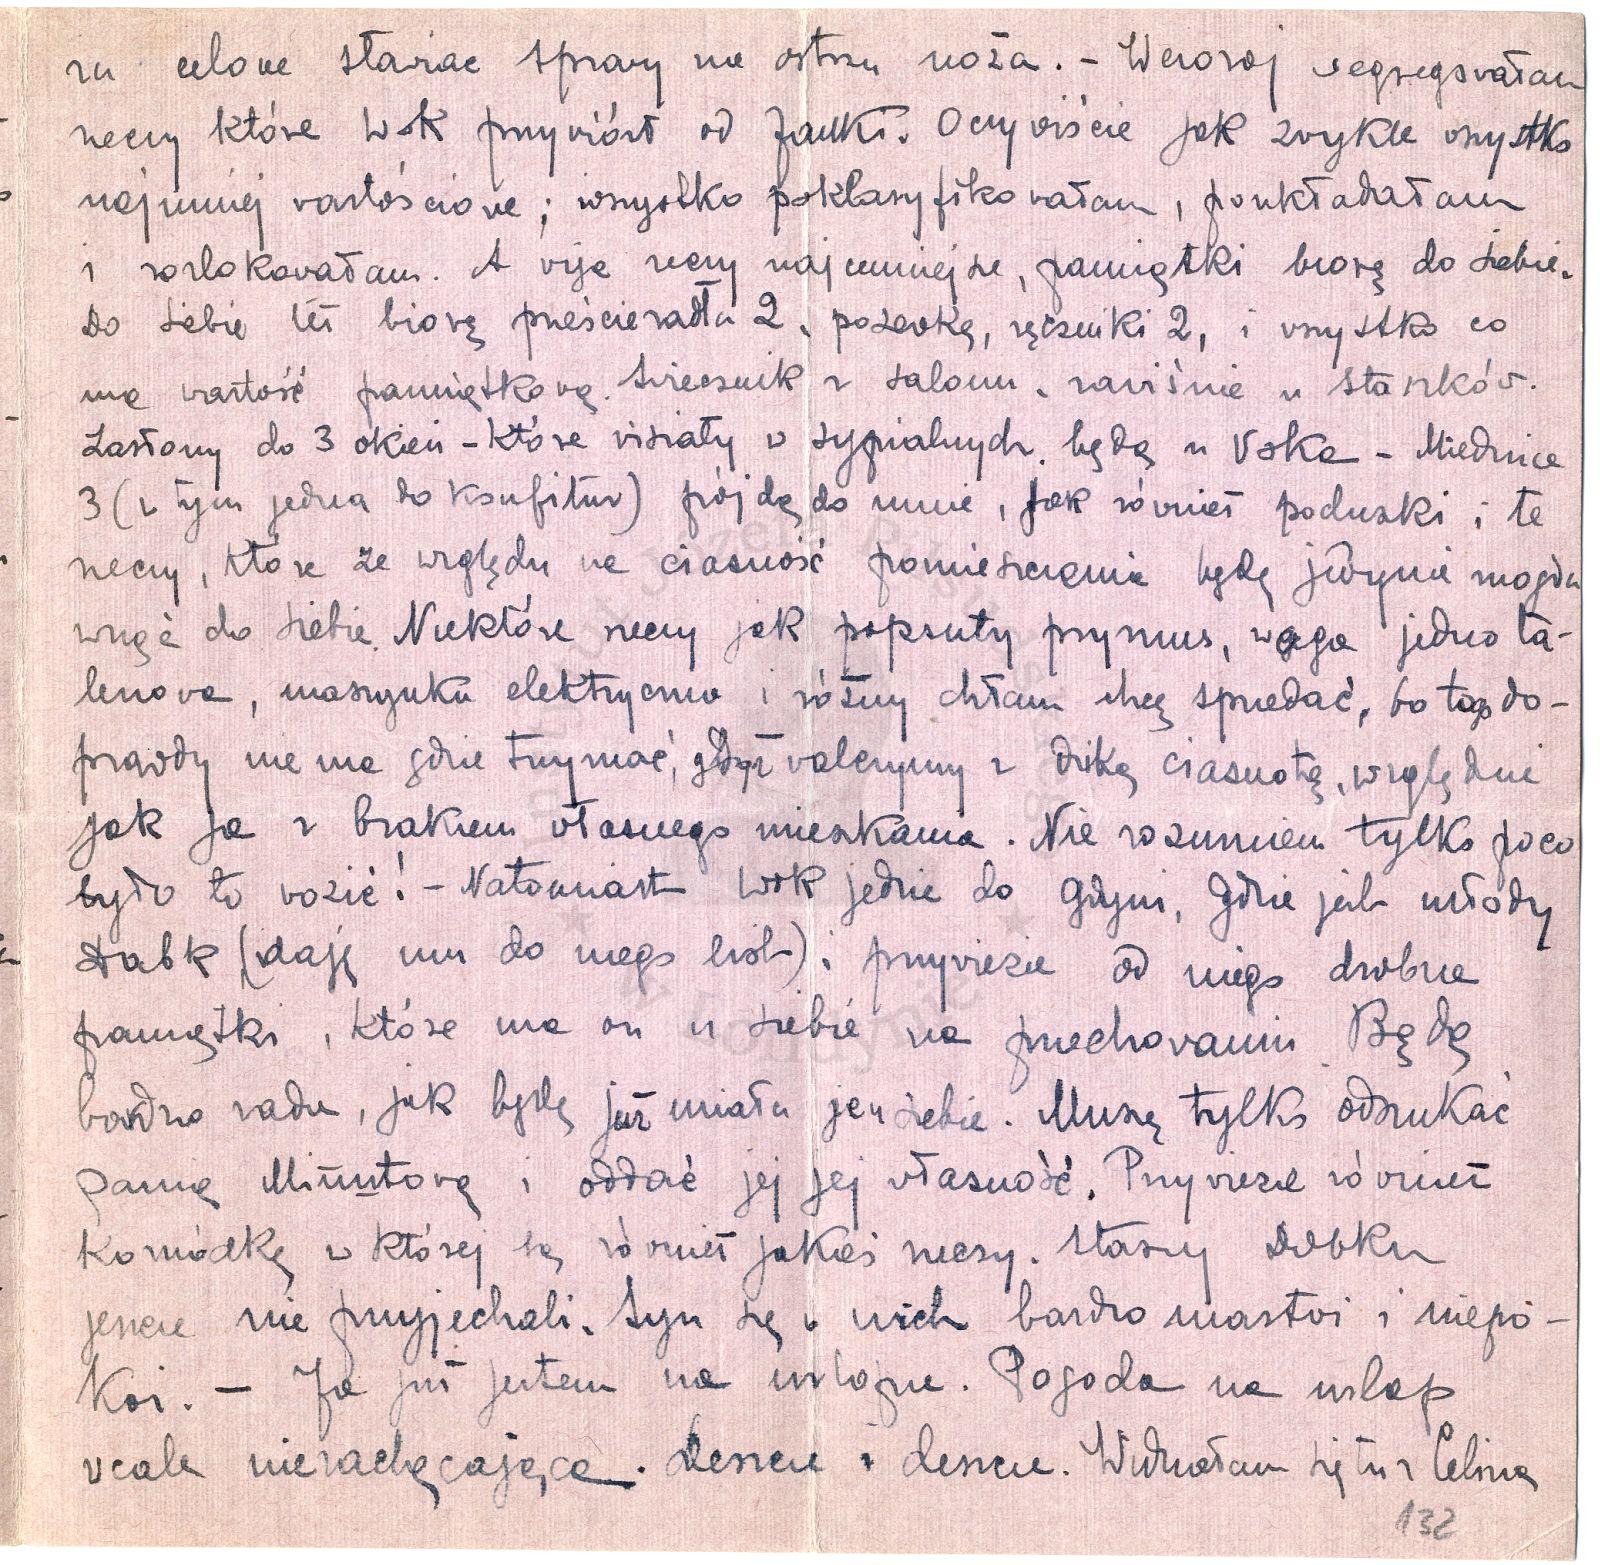 za celowe stawiać sprawy na ostrzu noża. – Wczoraj segregowałam
rzeczy które Wok przywiózł od Janki. Oczywiście jak zwykle wszystko
najmniej wartościowe; wszystko poklasyfikowałam, poukładałam
i rozlokowałam. A więc rzeczy najcenniejsze, pamiątki biorę do siebie.
Do siebie też biorę prześcieradła 2, poszewkę, ręczniki 2, i wszystko co
ma wartość pamiątkową. Świecznik z salonu, zawiśnie u Staszków.
Zasłony do 3 okien – które wisiały w sypialnych będą u Woka – Miednice
3 (w tym jedna do konfitur) pójdą do mnie, jak również poduszki i te
rzeczy, które ze względu na ciasność pomieszczenia będę jedynie mogła
wziąć do siebie. Niektóre rzeczy jak popsuty prymus, waga jedno ta-
lerzowa, maszynka elektryczna i różny chłam chcę sprzedać, bo tego do-
prawdy nie ma gdzie trzymać, gdyż walczymy z dziką ciasnotą, względnie
jak ja z brakiem własnego mieszkania. Nie rozumiem tylko poco
było to wozić! – Natomiast Wok jedzie do Gdyni, gdzie jest młody
Dąbk (daję mu do niego list) i przywiezie od niego drobne
pamiątki, które ma on u siebie na przechowaniu. Będę
bardzo rada, jak będę już miała je u siebie. Muszę tylko odszukać
panią i oddać jej jej własność. Przywiezie również
komódkę w której są również jakieś rzeczy. Starzy
jeszcze nie przyjechali. Syn się o nich bardzo martwi i niepo-
koi. – Ja już jestem na urlopie. Pogoda na urlop
wcale niezachęcająca. Deszcze i deszcze. Widziałam się tu z Celiną
132
Instytut Józefa Piłsudskiego
w Londynie